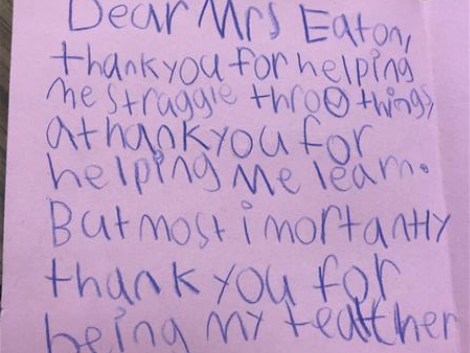 Dear Mrs Eaton,
thankyou for helping
me straggle thro things,
a thankyou for
helping me learn.
But most imortantly
thank you for
being my teatther